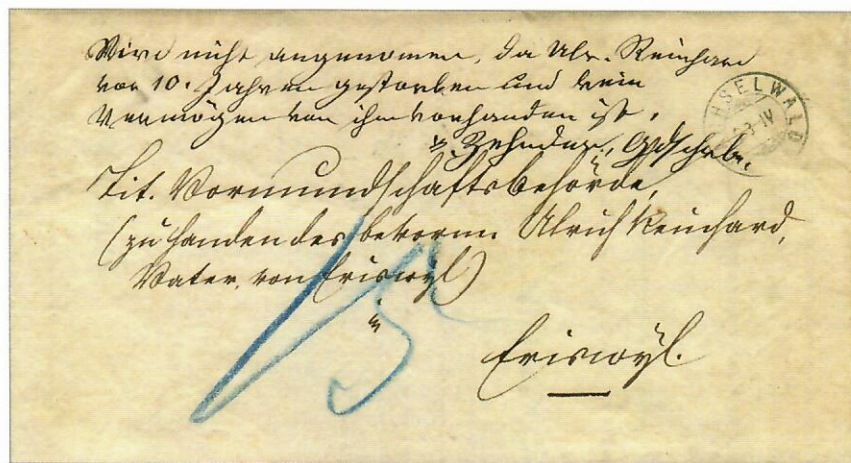 Wird nicht angenommen, da Ulr. Reinhard
vor 10. Jahren gestorben und kein
Vermögen von ihm vorhanden ist.
Zehnder, Gdschrbr.
HSELWALD
IV
Tit. Vormundschaftsbehörde,
(zu Handen des bevorm. Ulrich Reinhard,
Vater, von Eriswyl)
in
15
Eriswyl.